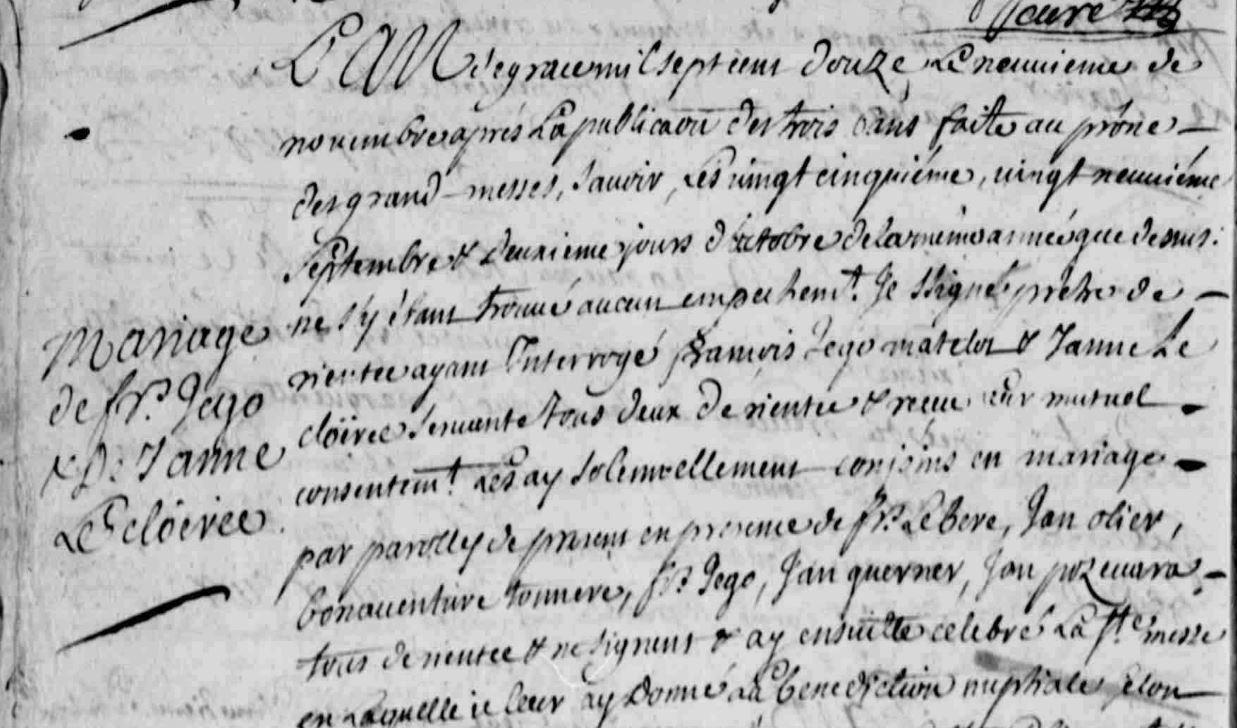 curé
L'AN de grace mil sept cent douze Le neuuieme de
nouembre aprés La publicaon des trois bans faite au prône
des grand-messes, sauoir, Les uingt cinquiéme, uingt neuuiéme
septembre & deuxieme jours d'octobre de la même année que dessus.
ne s'y étant trouué aucun empechemt. Je ssigné prétre de
rientec ayant Interrogé francois Jego matelot & Janne Le
cloirec seruante tous deux de rientec & receu leur mutuel
consentemt. Les ay solemnellement conjoins en mariage
par parolles de present en presence de fr. Le bere, Jan olier,
bonauenture tonnere, fr. Jego, Jan querner, Jan
tous de rientec & ne signent & ay ensuitte celebré La ste messe
en Laquelle ie leur ay donné La benediction nuptiale selon
Mariage
de fr. Jego
& De Janne
Le cloirec